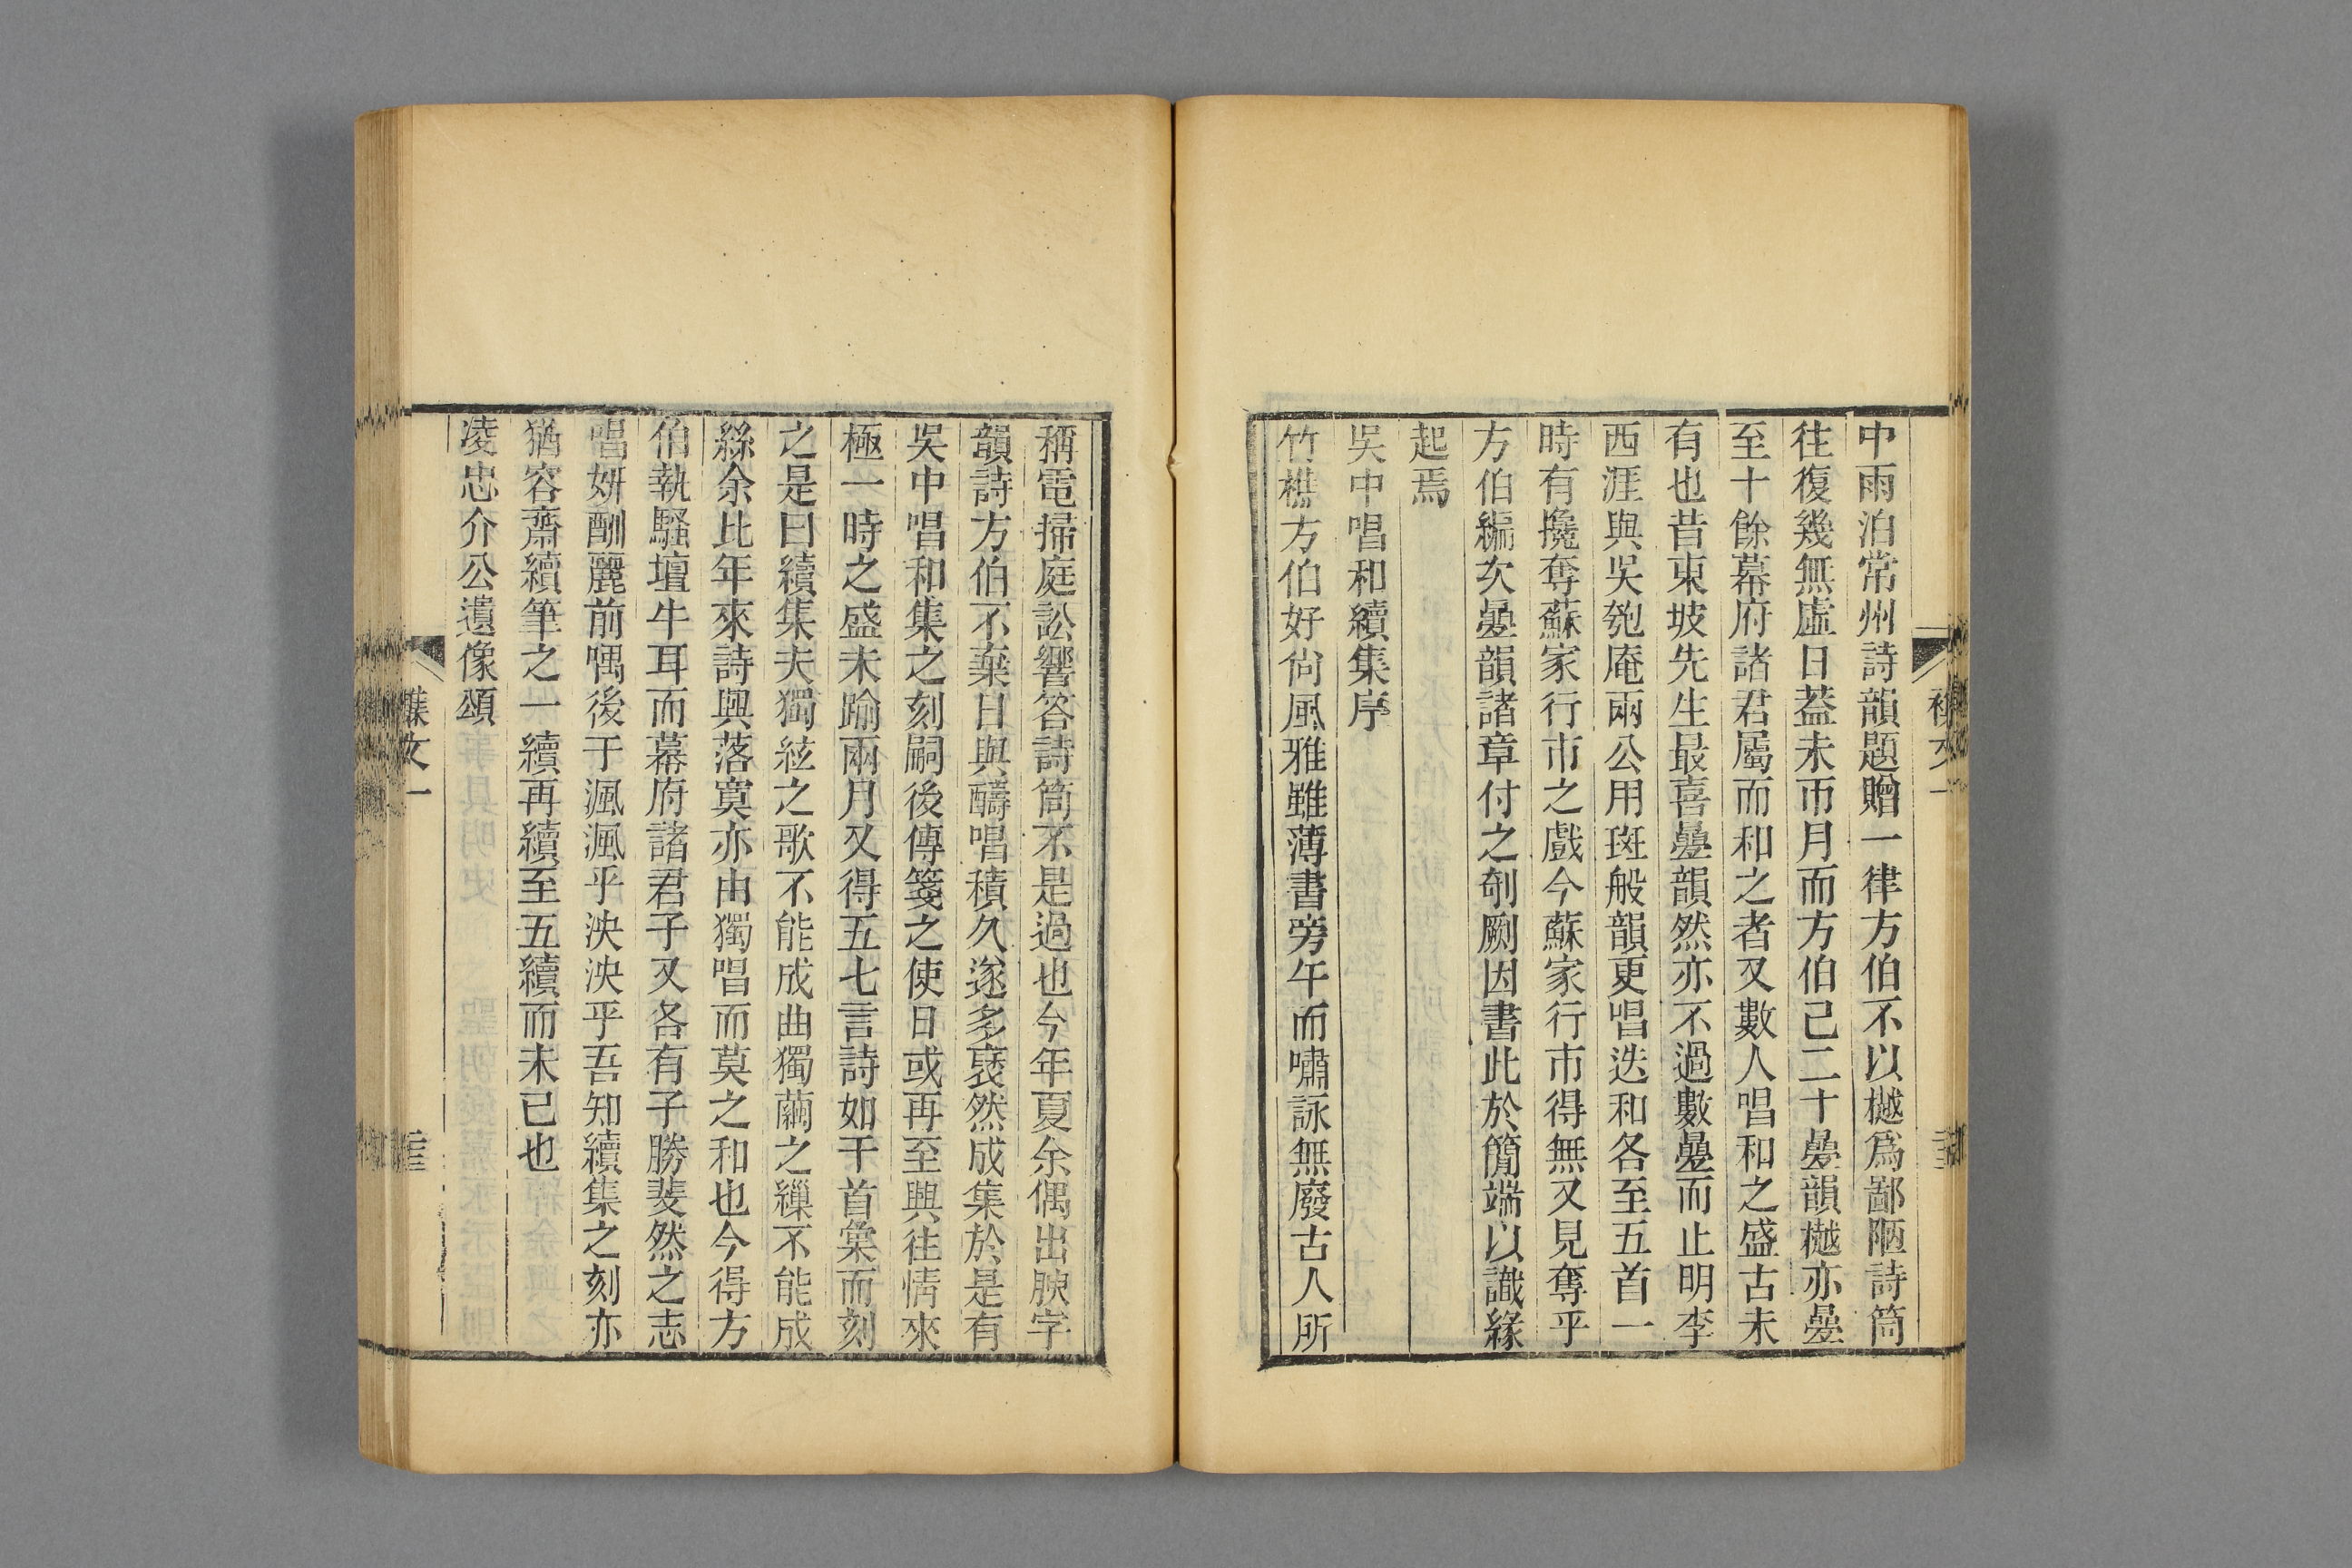 中雨泊常州詩韻題贈一律方伯不以樾爲鄙陋詩筒
往復幾無虛日蓋未帀月而方伯己二十疊韻樾亦疊
至十餘幕府諸君屬而和之者又數人唱和之盛古未
有也昔東坡先生最喜疊韻然亦不過數疊而止明李
西涯與吳匏庵兩公用斑般韻更唱迭和各至五首一
時有攙奪蘇家行市之戲今蘇家行市得無又見奪乎
方伯編次疊韻諸章付之剞劂因書此於簡端以識緣
起焉
吳中唱和續集序
竹樵方伯好尙風雅雖薄書旁午而嘯詠無廢古人所
稱電掃庭訟響答詩筒不是過也今年夏余偶出腴字
韻詩方伯不棄日與醻唱積久遂多裒然成集於是有
吳中唱和集之刻嗣後傳箋之使日或再至興往情來
極一時之盛未踰兩月又得五七言詩如干首彙而刻
之是曰續集夫獨絃之歌不能成曲獨繭之繅不能成
絲余比年來詩興落寞亦由獨唱而莫之和也今得方
伯執騷壇牛耳而幕府諸君子又各有子勝斐然之志
唱妍酬麗前喁後于渢渢乎泱泱乎吾知續集之刻亦
猶容齋續筆之一續再續至五續而未已也
凌忠介公遺像頌
襍文一